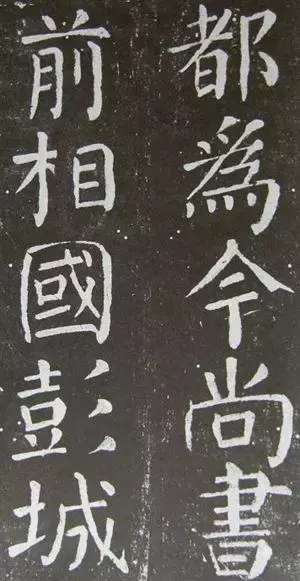 都為今尚書
前相國彭城